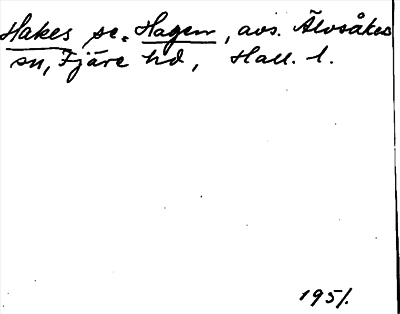 Hakes se. Hagen, avs. Älvsåkers
sn, Fjäre hd, Hall. l.
1951.